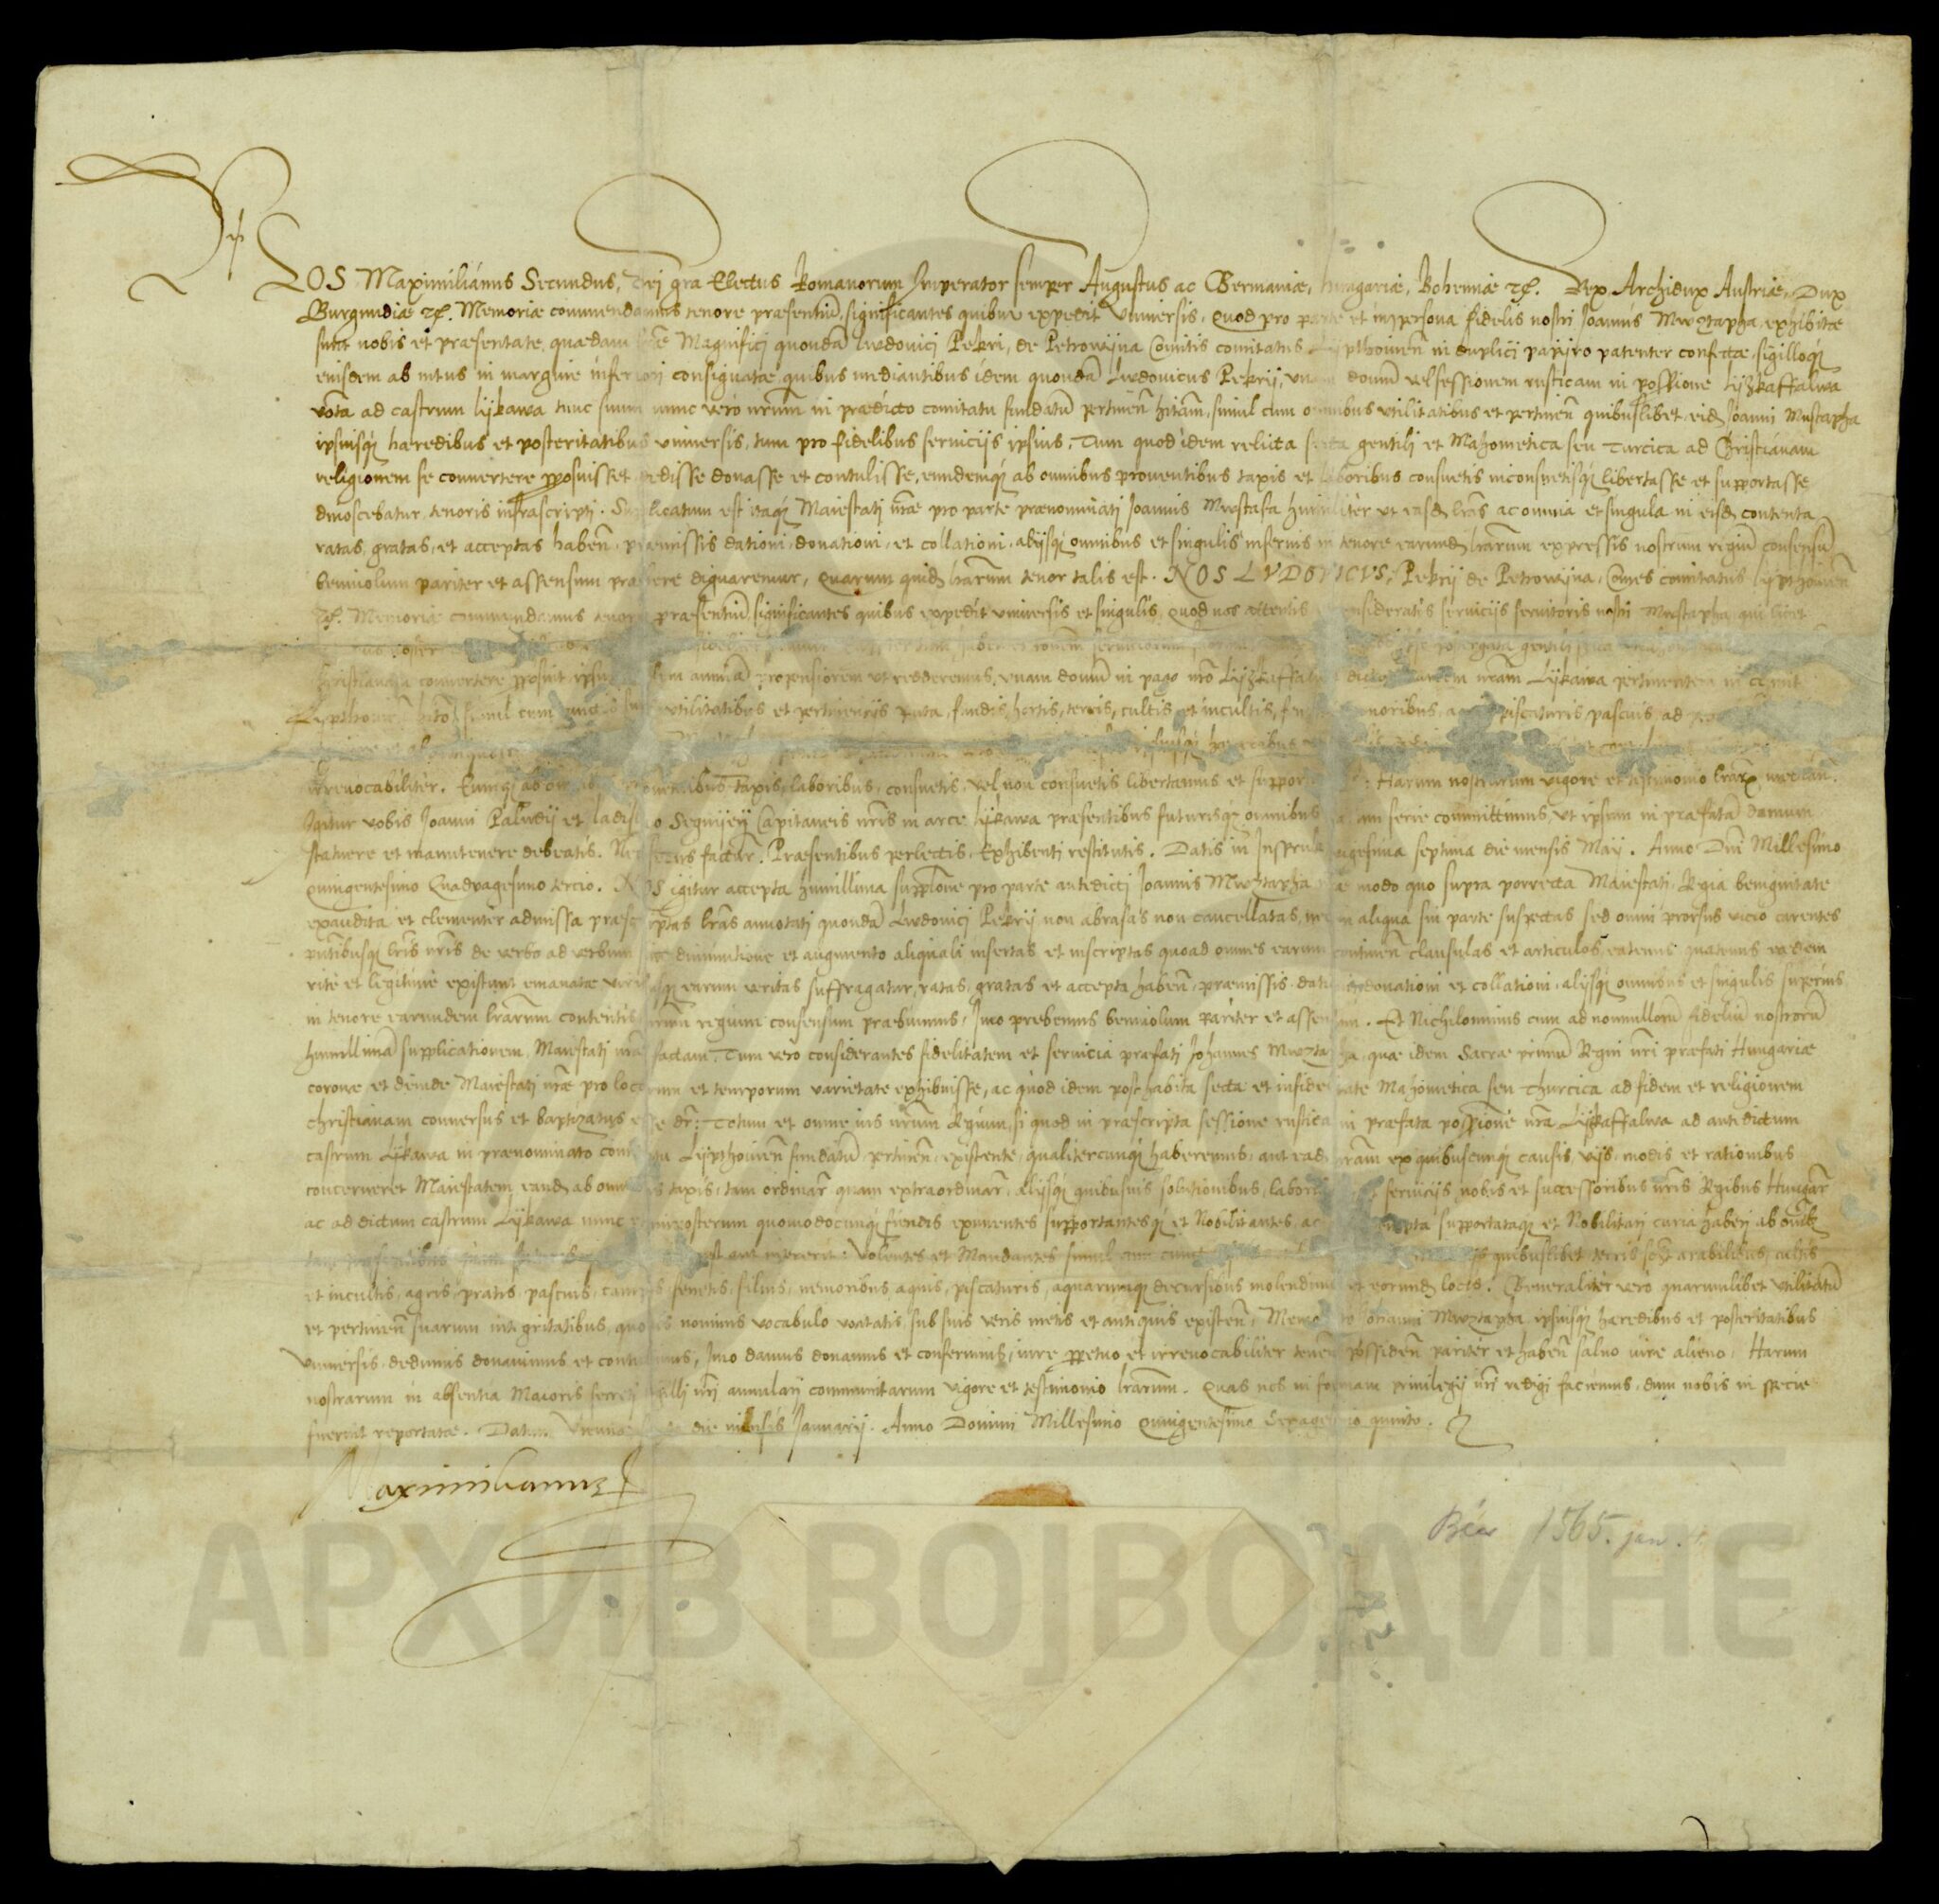 NOS Maximilianus Secundus, Dei gra Electus Romanorum Imperator semper Augustus ac Germaniæ, Hungariæ, Bohemiæ etc. Rex. Archidux Austriæ, Dux
Burgundiæ etc. Memoriæ commendamus tenore præsentiũ, significantes quibus expedit Vniversis, Quod pro parte et in persona fidelis nostri Joannis Mwztapha, exhibitæ
sunt nobis et præsentatæ, quædam lræ Magnifici quondã Lwdovici Pekri, de Petrowyna Comitis comitatus Lypthovien̄ in duplici papyro patenter confectæ, sigilloq́
eiusdem ab intus in margine inferiori consignatæ, quibus mediantibus idem quondã Lwdovicus Pekrij, vnam domũ vel sessionem rusticam in possione Lyzkaffalwa
vota ad castrum Lykawa tunc suum nunc vero nrũm in prædicto comitatu fundatũ pertinen̄ hitãm, simul cum omnibus vtilitatibus et pertinen̄ quibuslibet, eid Joanni Mustapha
ipsiusq́ hæredibus et posteritatibus vniversis, tum pro fidelibus serviciis ipsius, Tum quod idem relicta secta gentili et Mahometica seu Turcica ad Christianam
religionem se convertere pposuisset dedisse donasse et contulisse, eundemq́ ab omnibus proventibus taxis et laboribus consuetis inconsuetisq́ libertasse et supportasse
dinoscebatur, tenoris infrascripti. Supplicatum est itaq́ Maiestati nræ pro parte prænominati Joannis Mwstafa humiliter vt easd lras ac omnia et singula in eisd contenta
ratas, gratas, et acceptas haben̄, præmissis dationi, donationi, et collationi, alijsq́ omnibus et singulis infernis in tenore earund lrarum expressis nostrum regiũ consensũ
benivolum pariter et assensum præbere dignaremur, Quarum quid lrarum tenor talis est. NOS LVDOVICVS, Pekrij de Petrowyna, Comes comitatus Lypthovien̄
etc. Memoriæ commendamus tenore præsentiũ, significantes quibus expedit vniversis et singulis, Quod nos attentis et consideratis serviciis servitoris nostri Mwstapha, qui licet
Christianam convertere pposuit, ipsum animũ propensiorem vt redderemus, vnam domũ in pago nrõ Lyzkaffalwa dicto arcem nram Lykawa pertinentem in comit
Lypthovien̄ simul cum cunctis suis vtilitatibus et pertinenciis puta, fundis, hortis, terris, cultis, et incultis, nemoribus, aquis piscaturis, pascuis, ad
irrevocabiliter. Eumq́ ab omnibus proventibus taxis, laboribus, consuetis, vel non consuetis libertamus et supportamus. Harum nostrarum vigore et testimonio lrarx median̄.
Igitur vobis Joanni Paludij et Ladislao Segnyey Capitaneis nris in arce Lykawa præsentibus futurisq́ omnibus harum serie committimus, vt ipsum in præfatã domum
statuere et manutenere debeatis. Nec secus factur̄. Præsentibus perlectis, Exhibenti restitutis. Datis in Insprukh vigesima septima die mensis Maij. Anno Dni Millesimo
Quingentesimo Quadragesimo tercio. NOS igitur accepta humillima supplone pro parte antedicti Joannis Mwztapha nræ modo quo supra porrecta Maiestati, Regia benignitate
exaudita et clementer admissa præscriptas lras annotati quondã Lwdovici Pekrij non abrasas non cancellatas, nec in aliqua sui parte suspectas sed omni prorsus vicio carentes
pntibusq́ lris nris de verbo ad verbum sine diminutione et augmento aliquali insertas et inscriptas quoad omnes earum continen̄ clausulas et articulos, eatenus quatenus eædem
rite et legitime existunt emanatæ viribusq́ earum veritas suffragatur, ratas, gratas et accepta haben̄, præmissis, dationi donationi et collationi, alijsq́ omnibus et singulis superius
in tenore earundem lrarum contentis nrum regium consensum præbuimus, Imo præbemus benivolum pariter et assensum. Et Nichilominus cum ad nonnullorũ fideliũ nostrorũ
humillimã supplicationem, Maiestati nræ factam, Tum vero considerantes fidelitatem et servicia præfati Johannis Mwztapha, quæ idem Sacræ primũ Regni nri præfati Hungariæ
coronæ et deinde Maiestati nræ pro locorum et temporum varietate exhibuisse, ac quod idem posthabita secta et infidelitate Mahometica seu Thurcica ad fidem et religionem
christianam conversus et baptizatus esse dr̄: Totum et omne ius nrũm Regium, si quod in præscripta sessione rustica in præfata possione nra Lyzkaffalwa ad antedictum
castrum Lykawa in prænominato comitatu Lypthovien̄ fundatũ pertinen̄, existente, qualitercunq́ haberemus, aut ead nram ex quibuscunq́ causis, viis, modis et rationibus
concerneret Maiestatem, eand ab omnibus taxis, tam ordinar̄ quam extraordinar̄, alijsq́ quibusvis solutionibus, laboribus serviciis, nobis et successoribus nris Regibus Hungar̄
ac ad dictum castrum Lykawa nunc et imposterum quomodocunq́ fiendis eximentes supportantesq́ et Nobilitantes, ac supportataq́ et Nobilitari curia haberi ab omibz
Volentes et Mandantes simul cum cunctis quibuslibet, terris scz arabilibus, cultis
et incultis, agris, pratis, pascuis, campis, fenetis, silvis, nemoribus, aquis, piscaturis, aquarumq́ decursibus molendinis et eorund locis. Generaliter vero quarumlibet vtilitatũ
et pertinen̄ suarum integritatibus, quovis nominis vocabulo vocitatis, sub suis veris metis et antiquis existen̄, Memorato Joanni Mwztapha, ipsiusq́ hæredibus et posteritatibus
vniversis, dedimus donavimus et contulimus, Imo damus donamus et conferimus, iure ppetuo et irrevocabiliter tenen̄ possiden̄ pariter et haben̄ salvo iure alieno. Harum
nostrarum in absentia Maioris secreti sigilli nri annulari communitarum vigore et testimonio lrarum. Quas nos in formam privilegij nri redigi faciemus, dum nobis in specie
fuerint reportatæ. Datum Viennæ die mensis Januarij. Anno Domini Millesimo Quingentesimo Sexagesimo quinto.
Maximilianus
Bécs 1565. jan.
АРХИВ ВОЈВОДИНЕ